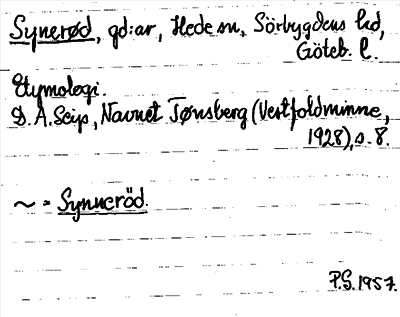 Synerød, gd:ar, Hede sn, Sörbygdens hd,
Göteb. l.
Etymologi.
D. A. Seip, Navnet Tønsberg (Vestfoldminne,
1928), s. 8.
~ = Synneröd.
P.S. 1957.